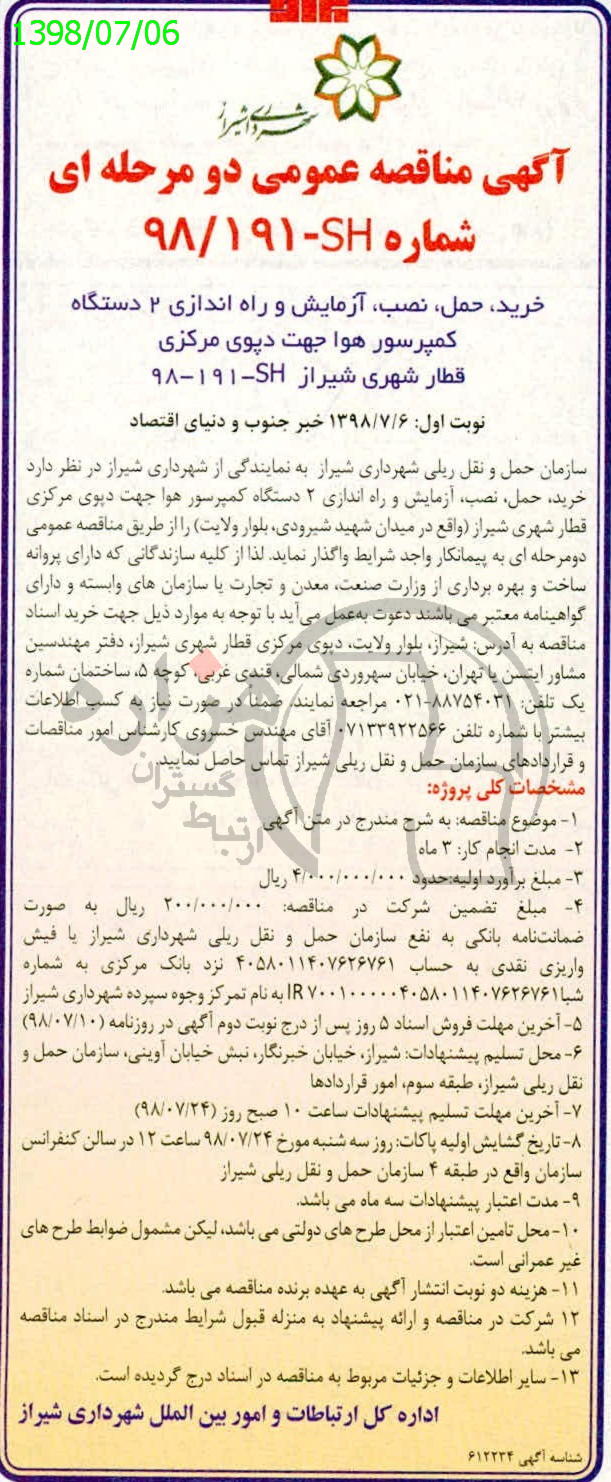 1398/07/06
شهرداری شیراز
آگهی مناقصه عمومی دو مرحله ای
شماره ۹۸/۱۹۱-SH
خرید، حمل، نصب، آزمایش و راه اندازی ۲ دستگاه
کمپرسور هوا جهت دپوی مرکزی
قطار شهری شیراز ۹۸-۱۹۱-SH
نوبت اول: ۱۳۹۸/۷/۶ خبر جنوب و دنیای اقتصاد
سازمان حمل و نقل ریلی شهرداری شیراز به نمایندگی از شهرداری شیراز در نظر دارد
خرید، حمل، نصب، آزمایش و راه اندازی ۲ دستگاه کمپرسور هوا جهت دپوی مرکزی
قطار شهری شیراز (واقع در میدان شهید شیرودی، بلوار ولایت) را از طریق مناقصه عمومی
دومرحله ای به پیمانکار واجد شرایط واگذار نماید. لذا از کلیه سازندگانی که دارای پروانه
ساخت و بهره برداری از وزارت صنعت، معدن و تجارت یا سازمان های وابسته و دارای
گواهینامه معتبر می باشند دعوت به‌عمل می‌آید با توجه به موارد ذیل جهت خرید اسناد
مناقصه به آدرس: شیراز، بلوار ولایت، دپوی مرکزی قطار شهری شیراز، دفتر مهندسین
مشاور ایتسن یا تهران، خیابان سهروردی شمالی، قندی غربی، کوچه ۵، ساختمان شماره
یک تلفن: ۸۸۷۵۴۰۳۱-۰۲۱ مراجعه نمایند. ضمنا در صورت نیاز به کسب اطلاعات
بیشتر با شماره تلفن ۰۷۱۳۳۹۲۲۵۶۶ آقای مهندس خسروی کارشناس امور مناقصات
و قراردادهای سازمان حمل و نقل ریلی شیراز تماس حاصل نمایید.
مشخصات کلی پروژه:
۱- موضوع مناقصه: به شرح مندرج در متن آگهی
۲- مدت انجام کار: ۳ ماه
۳- مبلغ برآورد اولیه:حدود ۴/۰۰۰/۰۰۰/۰۰۰ ریال
۴- مبلغ تضمین شرکت در مناقصه: ۲۰۰/۰۰۰/۰۰۰ ریال به صورت
ضمانت‌نامه بانکی به نفع سازمان حمل و نقل ریلی شهرداری شیراز یا فیش
واریزی نقدی به حساب ۴۰۵۸۰۱۱۴۰۷۶۲۶۷۶۱ نزد بانک مرکزی به شماره
شبا IR۷۰۰۱۰۰۰۰۰۴۰۵۸۰۱۱۴۰۷۶۲۶۷۶۱ به نام تمرکز وجوه سپرده شهرداری شیراز
۵- آخرین مهلت فروش اسناد ۵ روز پس از درج نوبت دوم آگهی در روزنامه (۹۸/۰۷/۱۰)
۶- محل تسلیم پیشنهادات: شیراز، خیابان خبرنگار، نبش خیابان آوینی، سازمان حمل و
نقل ریلی شیراز، طبقه سوم، امور قراردادها
۷- آخرین مهلت تسلیم پیشنهادات ساعت ۱۰ صبح روز (۹۸/۰۷/۲۴)
۸- تاریخ گشایش اولیه پاکات: روز سه شنبه مورخ ۹۸/۰۷/۲۴ ساعت ۱۲ در سالن کنفرانس
سازمان واقع در طبقه ۴ سازمان حمل و نقل ریلی شیراز
۹- مدت اعتبار پیشنهادات سه ماه می باشد.
۱۰- محل تامین اعتبار از محل طرح های دولتی می باشد، لیکن مشمول ضوابط طرح های
غیر عمرانی است.
۱۱- هزینه دو نوبت انتشار آگهی به عهده برنده مناقصه می باشد.
۱۲ شرکت در مناقصه و ارائه پیشنهاد به منزله قبول شرایط مندرج در اسناد مناقصه
می باشد.
۱۳- سایر اطلاعات و جزئیات مربوط به مناقصه در اسناد درج گردیده است.
اداره کل ارتباطات و امور بین الملل شهرداری شیراز
شناسه آگهی ۶۱۲۲۳۴
هزاره
گستران
ارتباط